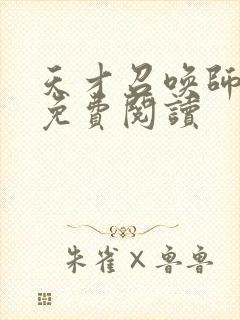 天才召喚師
免費閱讀
朱雀×魯魯